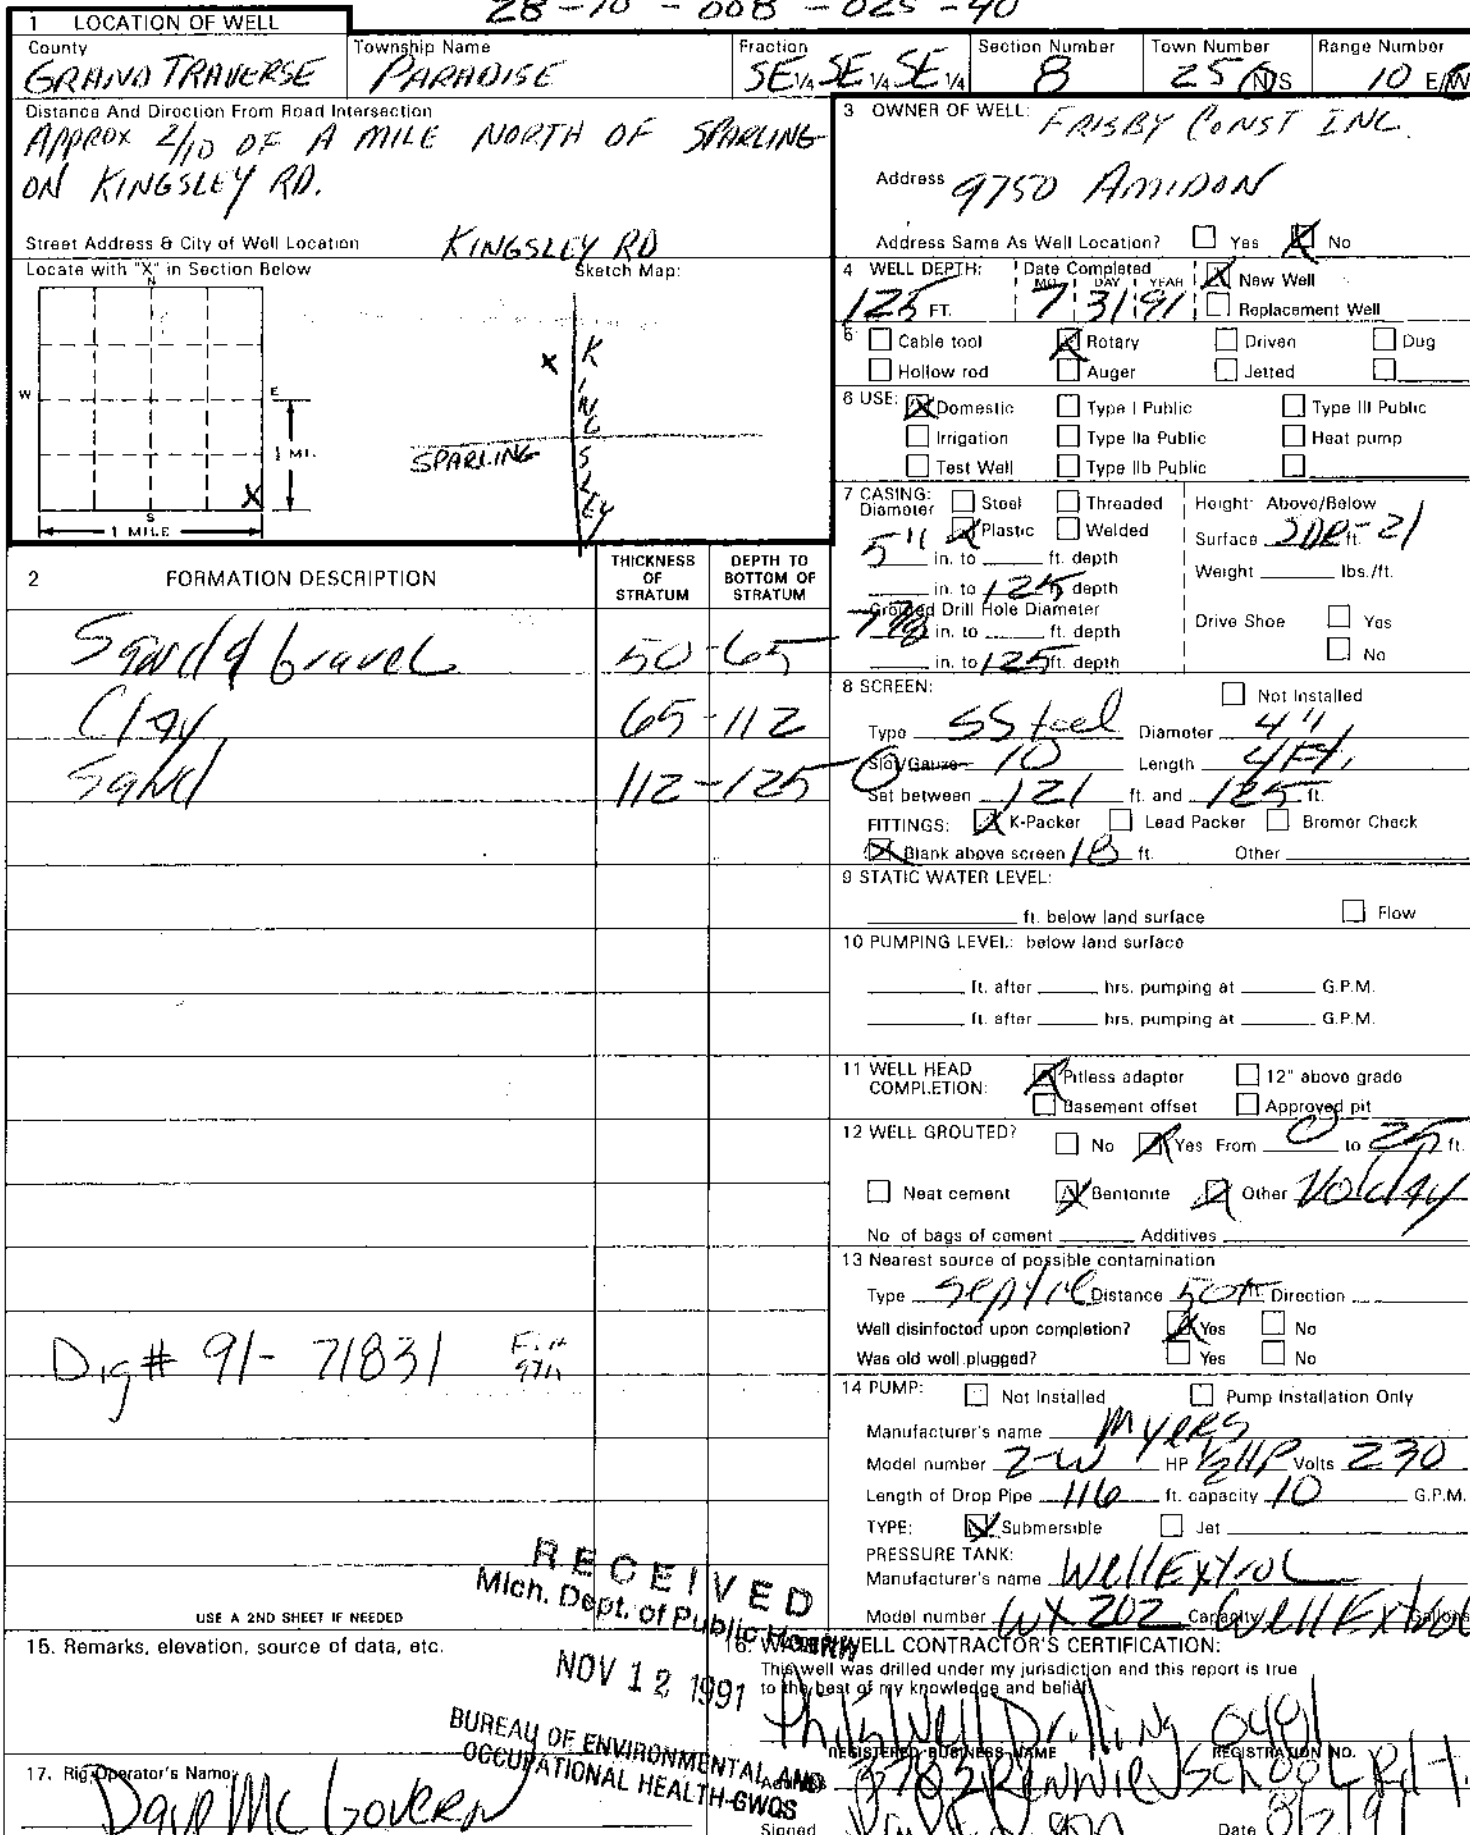 28-10-008-025-40
1 LOCATION OF WELL
County
GRAND TRAVERSE
Township Name
PARADISE
Fraction
SE 1/4 SE 1/4 SE 1/4
Section Number
8
Town Number
25 N/S
Range Number
10 E/W
Distance And Direction From Road Intersection
APPROX 2/10 OF A MILE NORTH OF SPARLING
ON KINGSLEY RD.
Street Address & City of Well Location KINGSLEY RD
Locate with "X" in Section Below
Sketch Map:
N
W
E
S
X
1 MI.
1 MILE
X
KINGSLEY
SPARLING
2 FORMATION DESCRIPTION
THICKNESS OF STRATUM
DEPTH TO BOTTOM OF STRATUM
Sand & Gravel 50-65
Clay 65-112
Sand 112-125
Dig # 91-71831
USE A 2ND SHEET IF NEEDED
3 OWNER OF WELL: FRISBY CONST INC.
Address 9750 AMIDON
Address Same As Well Location? Yes No
4 WELL DEPTH: 125 FT.
Date Completed
MO. DAY YEAR
7 31 91
New Well
Replacement Well
5 Cable tool Rotary Driven Dug
Hollow rod Auger Jetted
6 USE: Domestic Type I Public Type III Public
Irrigation Type IIa Public Heat pump
Test Well Type IIb Public
7 CASING: Steel Threaded
Diameter Plastic Welded
5" in. to ft. depth
in. to 125 ft. depth
Height: Above/Below
Surface SDR-21 ft.
Weight lbs./ft.
Grouted Drill Hole Diameter
7 7/8 in. to ft. depth
in. to 125 ft. depth
Drive Shoe Yes
No
8 SCREEN: Not Installed
Type SSteel Diameter 4"
Slot/Gauze 10 Length 4 Ft.
Set between 121 ft. and 125 ft.
FITTINGS: K-Packer Lead Packer Bremer Check
Blank above screen 18 ft. Other
9 STATIC WATER LEVEL:
ft. below land surface Flow
10 PUMPING LEVEL: below land surface
ft. after hrs. pumping at G.P.M.
ft. after hrs. pumping at G.P.M.
11 WELL HEAD COMPLETION: Pitless adaptor 12" above grade
Basement offset Approved pit
12 WELL GROUTED? No Yes From 0 to 25 ft.
Neat cement Bentonite Other Volclay
No. of bags of cement Additives
13 Nearest source of possible contamination
Type Septic Distance 50 ft. Direction
Well disinfected upon completion? Yes No
Was old well plugged? Yes No
14 PUMP: Not Installed Pump Installation Only
Manufacturer's name Myers
Model number 2-W HP 1/2 HP Volts 230
Length of Drop Pipe 116 ft. capacity 10 G.P.M.
TYPE: Submersible Jet
PRESSURE TANK:
Manufacturer's name WellExtrol
Model number WX 202 Capacity WellExtrol Gallons
15. Remarks, elevation, source of data, etc.
RECEIVED
Mich. Dept. of Public Health
NOV 12 1991
BUREAU OF ENVIRONMENTAL AND
OCCUPATIONAL HEALTH-GWQS
16. WATER WELL CONTRACTOR'S CERTIFICATION:
This well was drilled under my jurisdiction and this report is true
to the best of my knowledge and belief.
Phil's Well Drilling 0491
REGISTERED BUSINESS NAME REGISTRATION NO.
Address 3782 Rennie School Rd
Signed Date 8/2/91
17. Rig Operator's Name:
Dave McGovern